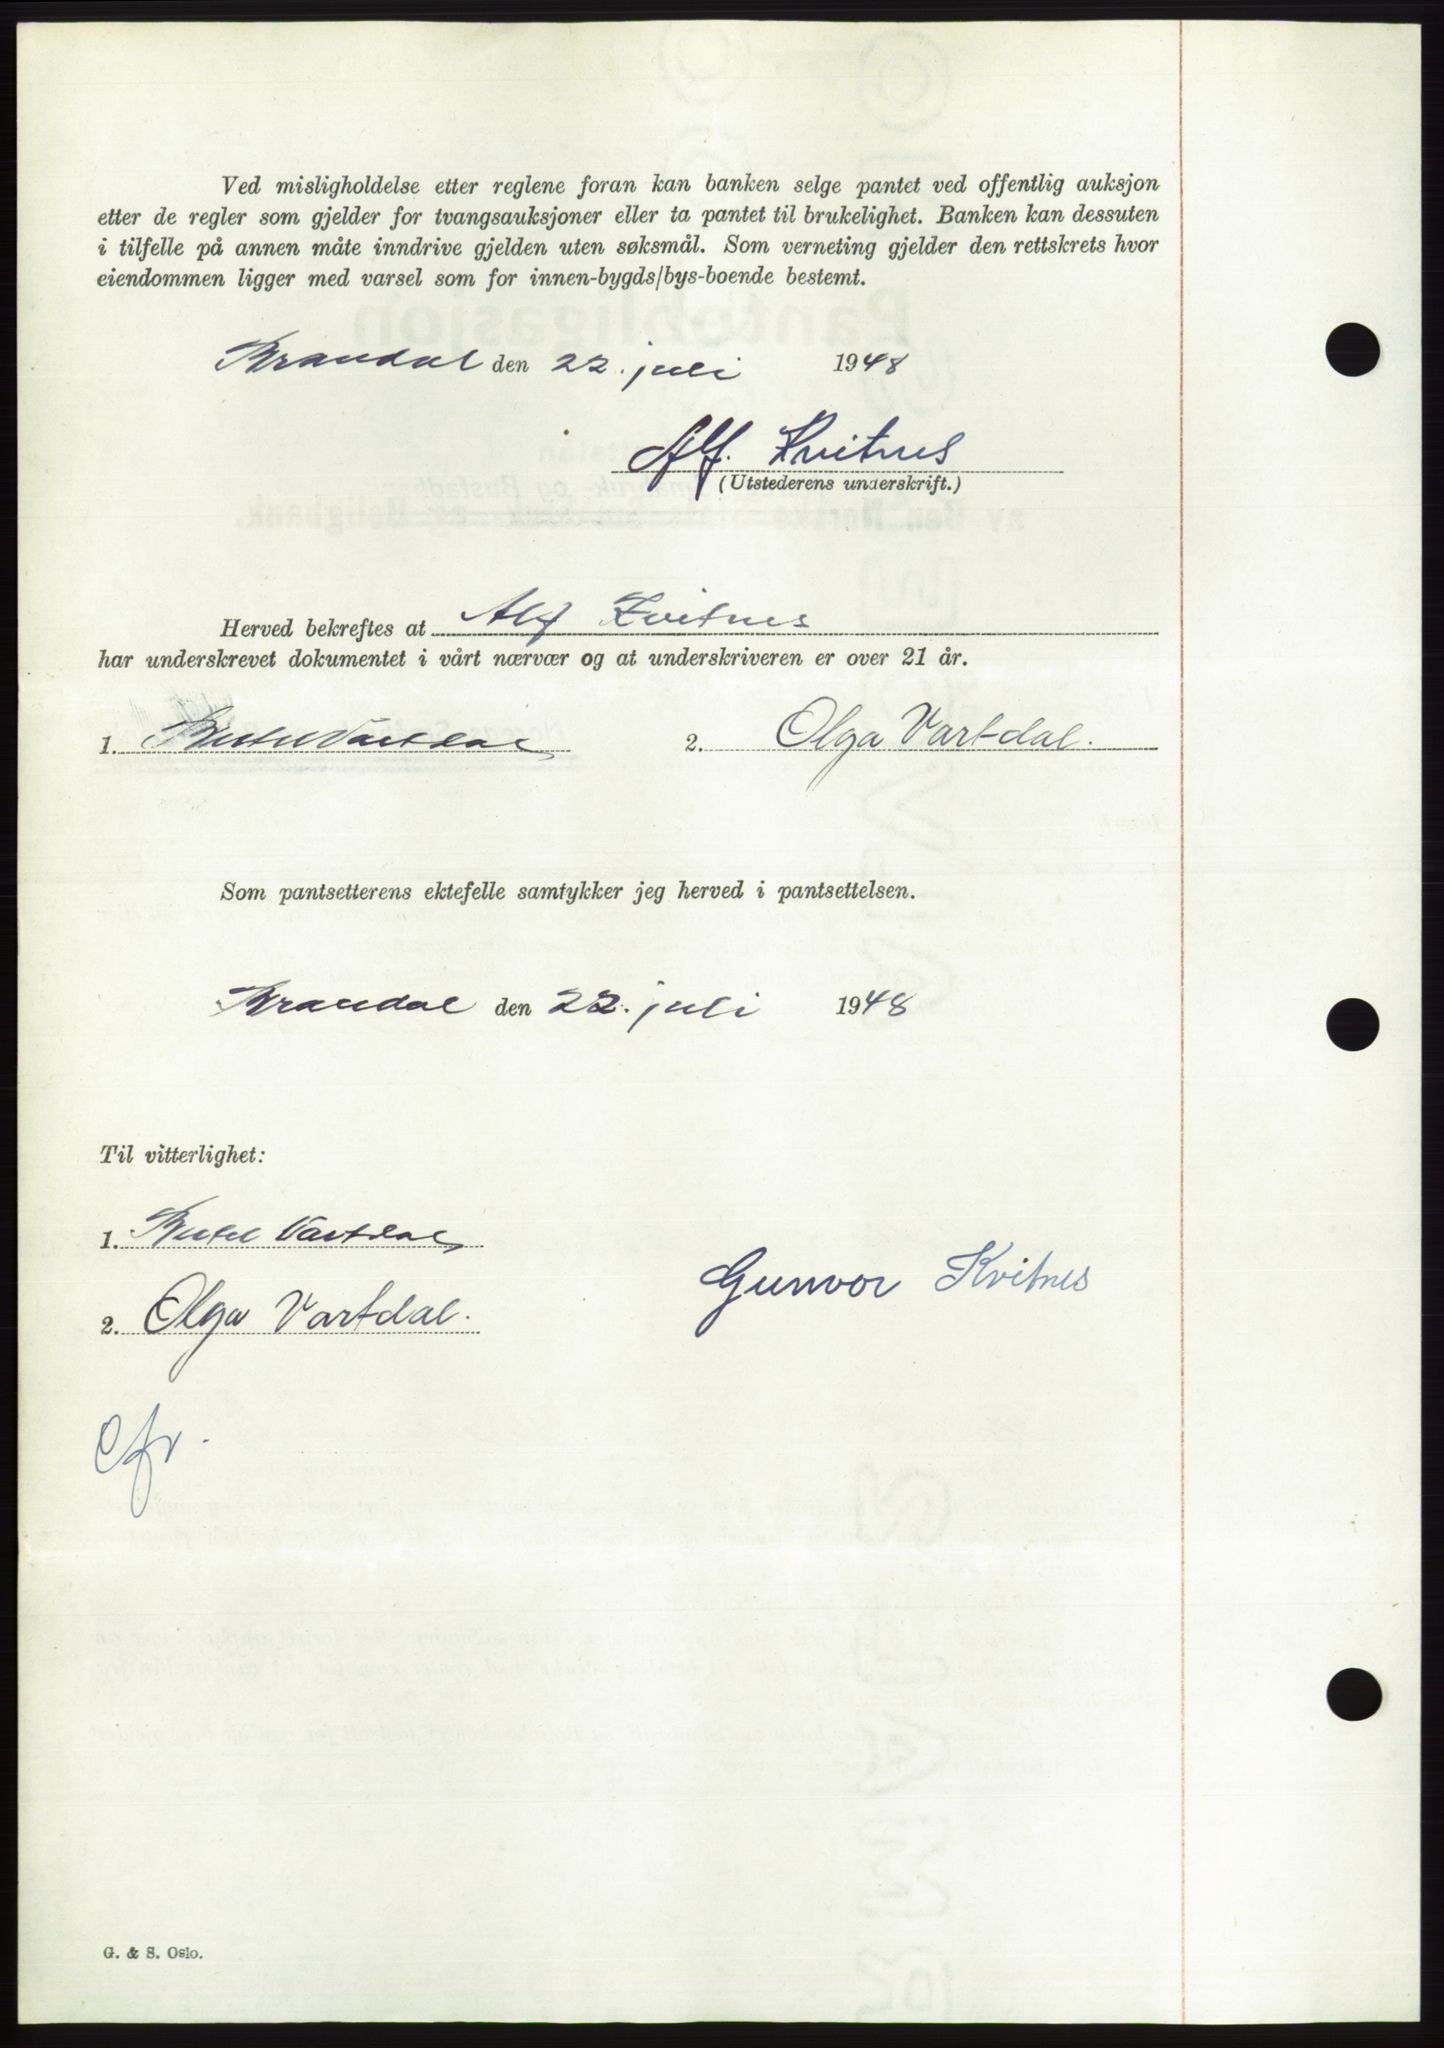 Ved misligholdelse etter reglene foran kan banken selge pantet ved offentlig auksjon
etter de regler som gjelder for tvangsauksjoner eller ta pantet til brukelighet. Banken kan dessuten
i tilfelle på annen måte inndrive gjelden uten søksmål. Som verneting gjelder den rettskrets hvor
eiendommen ligger med varsel som for innen-bygds/bys-boende bestemt.
Brandal den 22. juli 1948
Alf. Kvitnes
(Utstederens underskrift.)
Herved bekreftes at Alf Kvitnes
har underskrevet dokumentet i vårt nærvær og at underskriveren er over 21 år.
1. Bertel Vartdal 2. Olga Vartdal.
Som pantsetterens ektefelle samtykker jeg herved i pantsettelsen.
Brandal den 22. juli 1948
Til vitterlighet:
1. Bertel Vartdal
Gunvor Kvitnes
2. Olga Vartdal.
Cfr.
G. & S. Oslo.